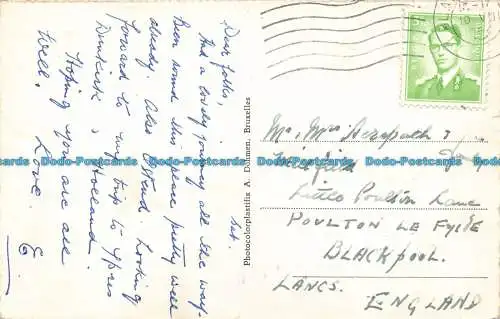 Sat.
Dear folks,
Had a lovely journey all the way.
Been round this place pretty well
already. Also Ostend. Looking
forward to our trip to Ypres
Dunkirk & Holland.
Hoping you are all
well.
Love. E
Photocolorplastifix A. Dohmen, Bruxelles
Mr. Mrs &
Little Poulton Lane
POULTON LE FYLDE
BLACKPOOL.
LANCS.
ENGLAND
Dodo-Postcards Dodo-Postcards Dodo-Postcards Dodo-Postcards